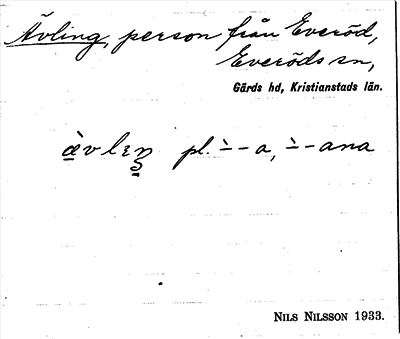 Ävling, person från Everöd,
Everöds sn,
Gärds hd, Kristianstads län.
æ̀vlɛŋ pl. ∸-a, ∸-ana
NILS NILSSON 1933.